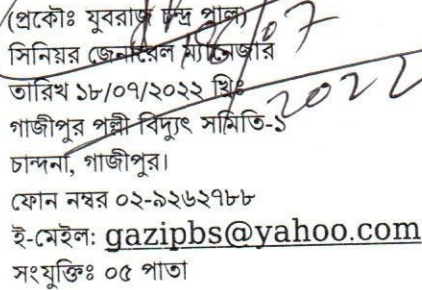 (প্রকৌঃ যুবরাজ চন্দ্র পাল)
সিনিয়র জেনারেল ম্যানেজার
তারিখ ১৮/০৭/২০২২ খ্রিঃ
গাজীপুর পল্লী বিদ্যুৎ সমিতি-১
চান্দনা, গাজীপুর।
ফোন নম্বর ০২-৯২৬২৭৮৮
ই-মেইল: gazipbs@yahoo.com
সংযুক্তিঃ ০৫ পাতা